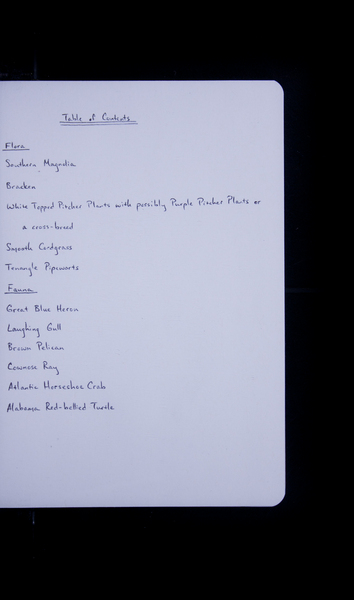 Table of Contents
Flora
Southern Magnolia
Bracken
White Topped Pitcher Plants with possibly Purple Pitcher Plants or
a cross-breed
Smooth Cordgrass
Tenangle Pipeworts
Fauna
Great Blue Heron
Laughing Gull
Brown Pelican
Cownose Ray
Atlantic Horseshoe Crab
Alabama Red-bellied Turtle